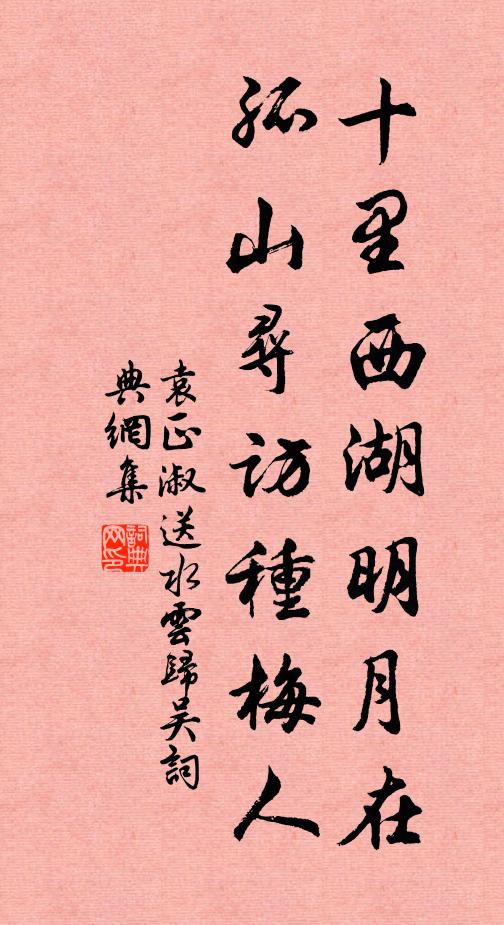 十里西湖明月在
孤山尋訪種梅人
袁正淑送水雲歸吳詞
典網集
詞典網印